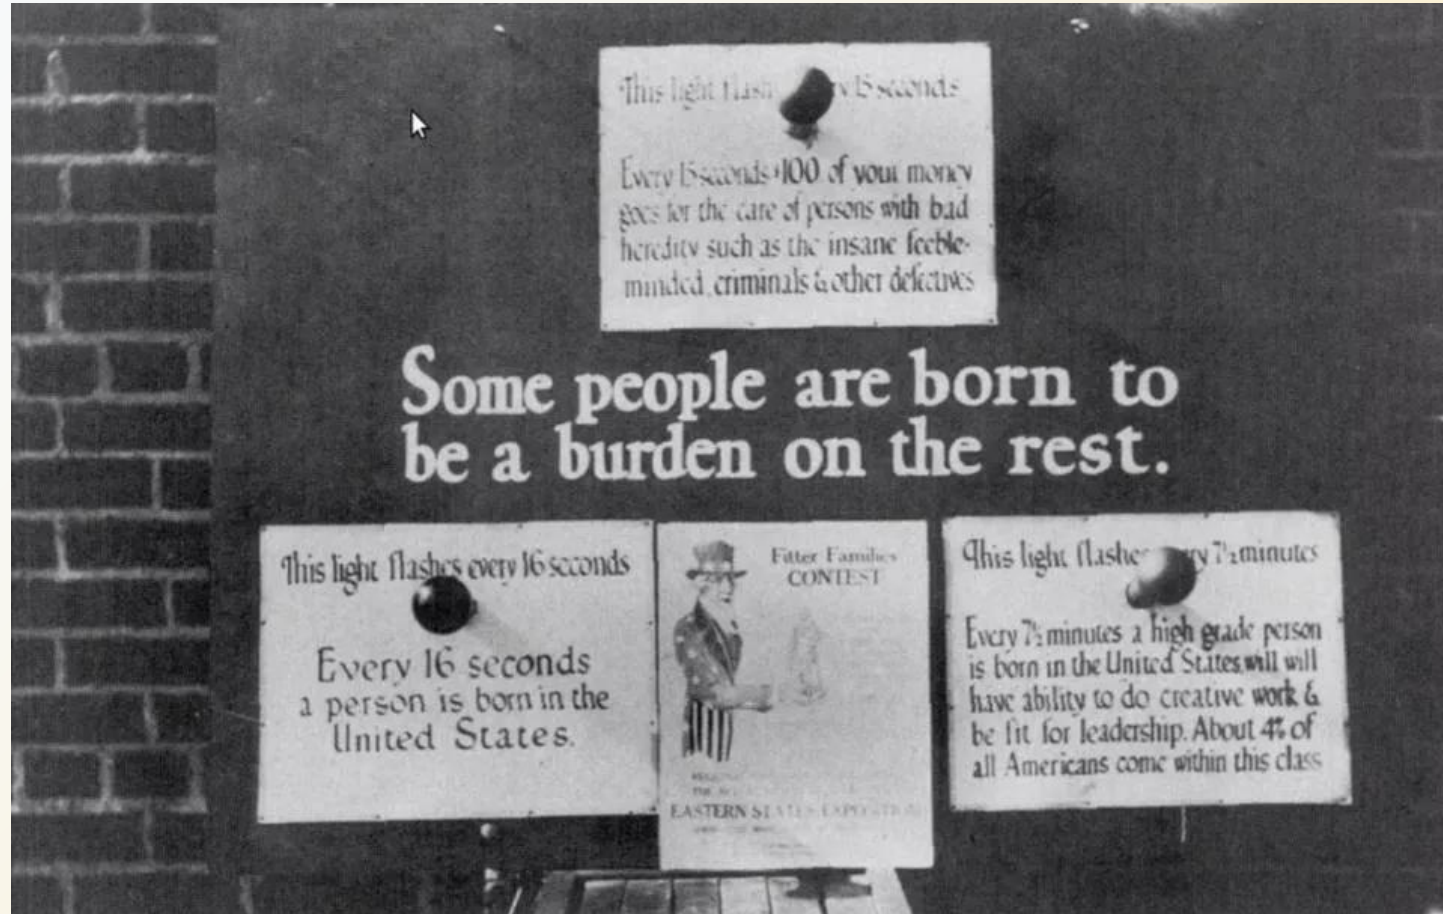 This light flash 15 seconds
Every 15 seconds $100 of your money
goes for the care of persons with bad
heredity such as the insane feeble-
minded, criminals & other defectives
Some people are born to
be a burden on the rest.
This light flashes every 16 seconds
Every 16 seconds
a person is born in the
United States.
Fitter Families
CONTEST
EASTERN STATES EXPOSITION
This light flashes 7½ minutes
Every 7½ minutes a high grade person
is born in the United States will will
have ability to do creative work &
be fit for leadership. About 4% of
all Americans come within this class